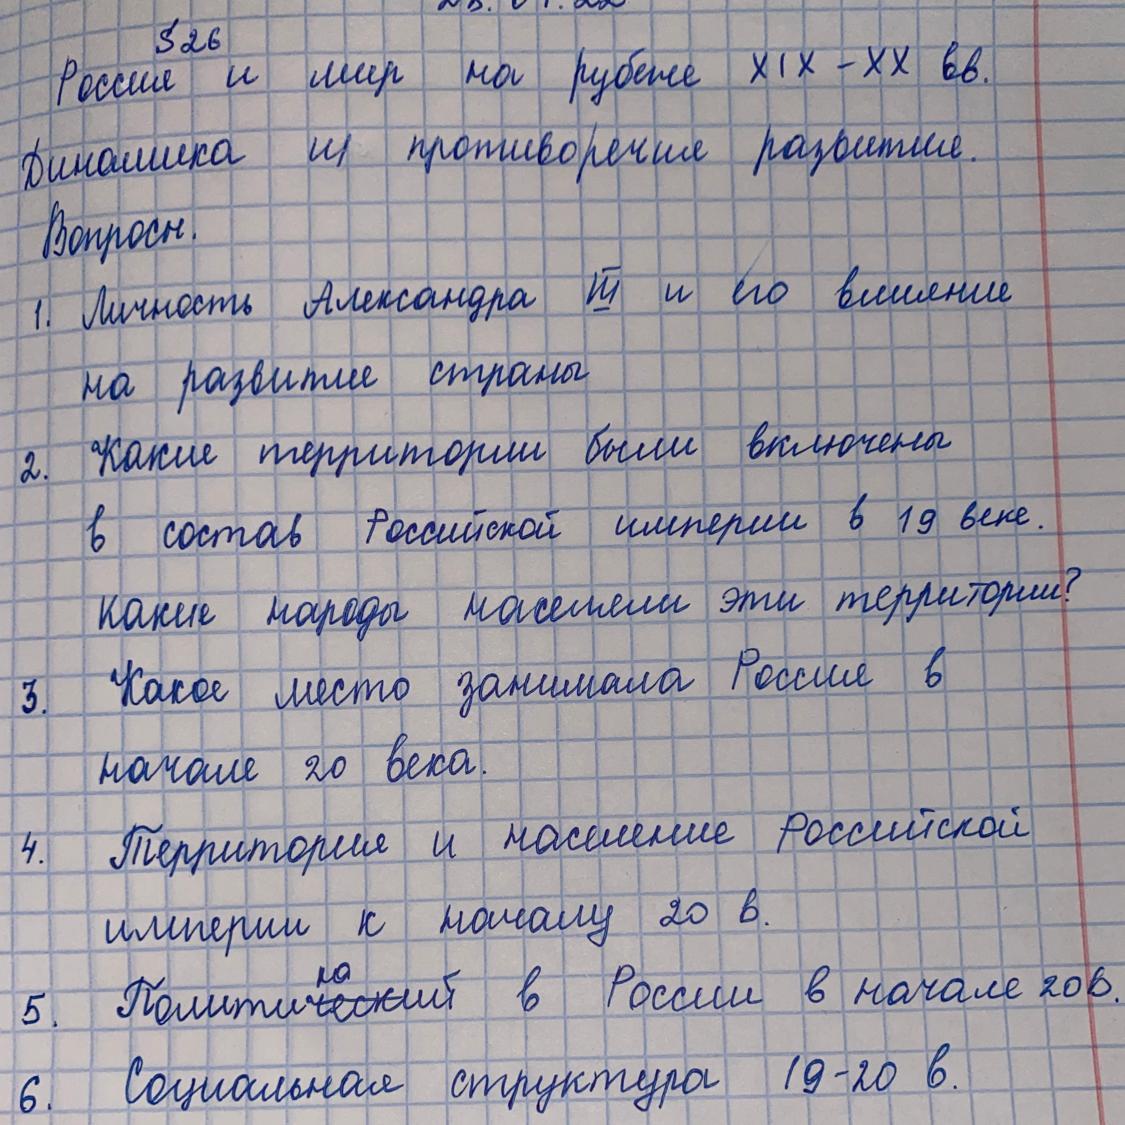 § 26
Россия и мир на рубеже XIX - XX вв.
Динамика и противоречия развития.
Вопросы.
1. Личность Александра III и его влияние
на развитие страны
2. Какие территории были включены
в состав Российской империи в 19 веке.
какие народы населяли эти территории?
3. Какое место занимала Россия в
начале 20 века.
4. Территория и население Российской
империи к началу 20 в.
5. Политика в России в начале 20в.
6. Социальная структура 19-20 в.